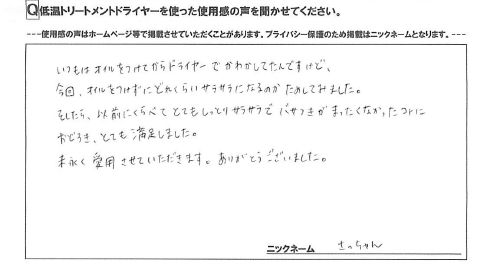 Q低温トリートメントドライヤーを使った使用感の声を聞かせてください。
---使用感の声はホームページ等で掲載させていただくことがあります。プライバシー保護のため掲載はニックネームとなります。---
いつもはオイルをつけてからドライヤーでかわかしてたんですけど、
今回、オイルをつけずにどれくらいサラサラになるのかためしてみました。
そしたら、以前にくらべてとてもしっとりサラサラでパサつきがまったくなかったコトに
おどろき、とても満足しました。
末永く愛用させていただきます。ありがとうございました。
ニックネーム さっちゃん